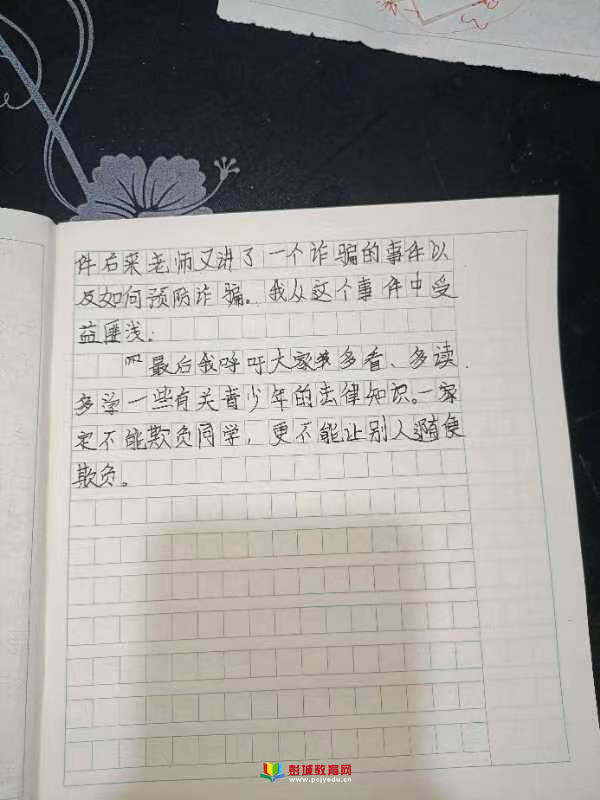 件后来老师又讲了一个诈骗的事件以
及如何预防诈骗。我从这个事件中受
益匪浅.
最后我呼吁大家多看、多读
多学一些有关青少年的法律知识。一家
定不能欺负同学，更不能让别人随便
欺负。
彭城教育网
www.pcjyedu.cn